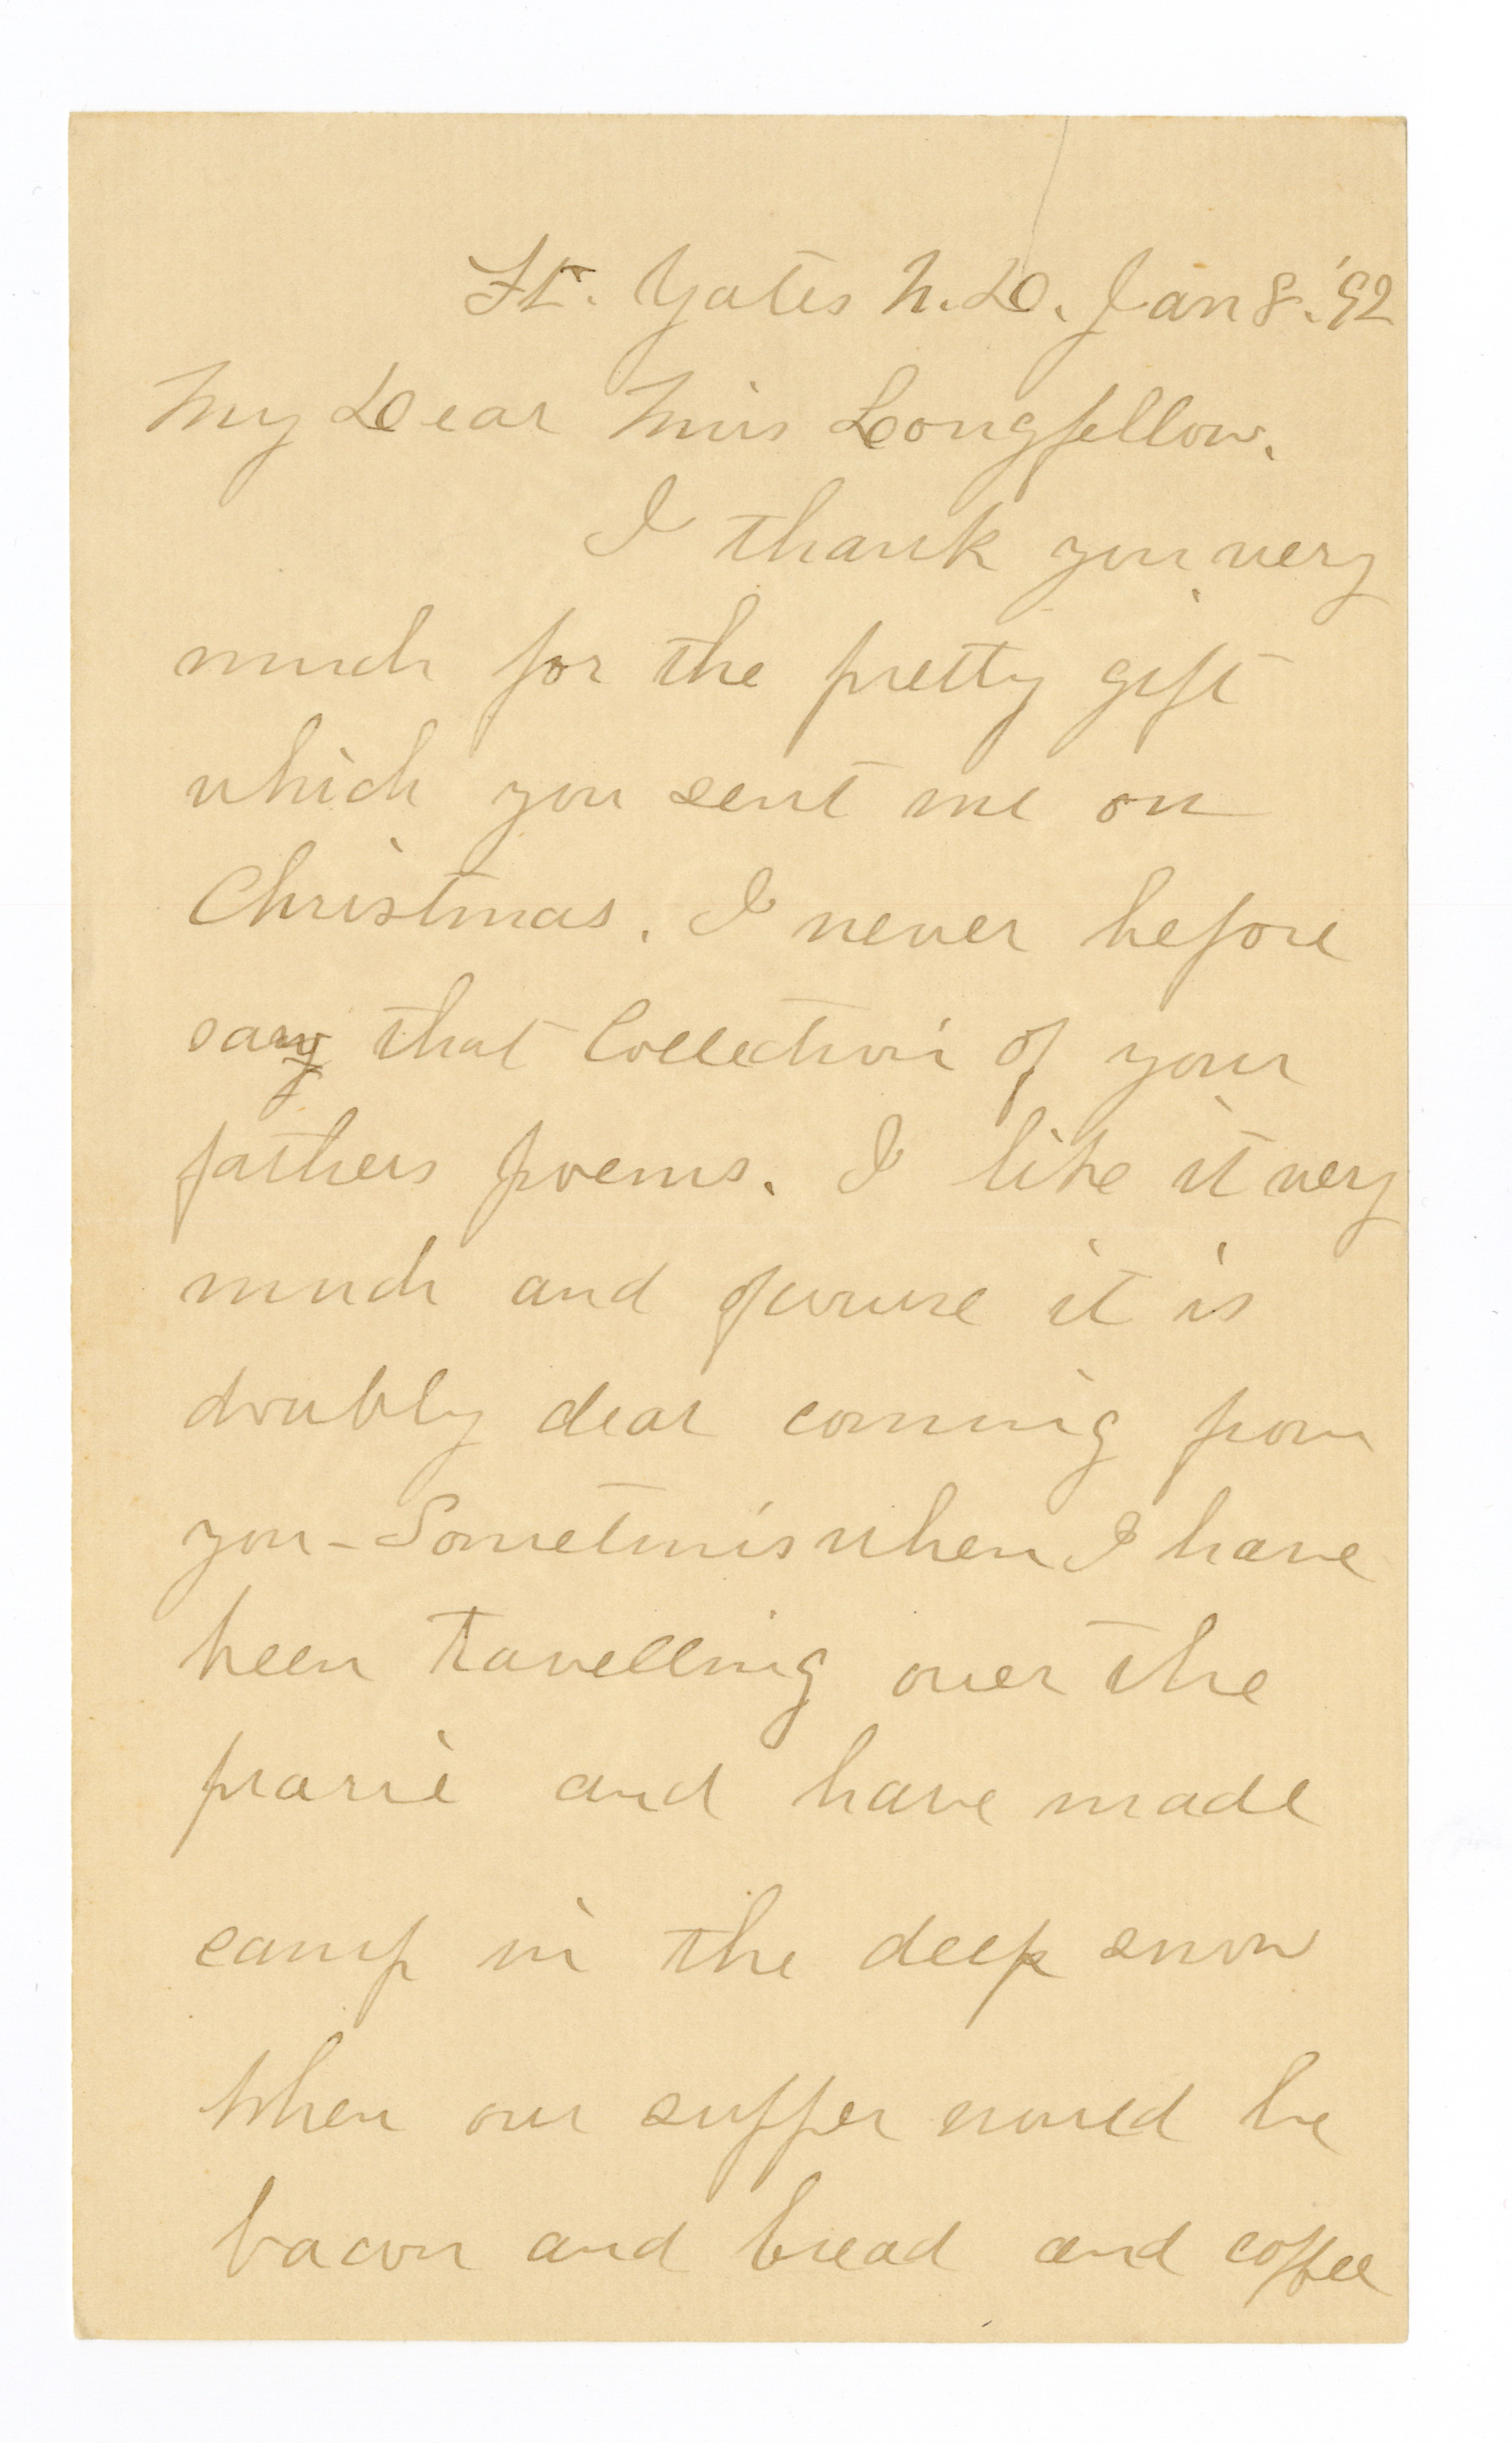 Ft. Yates N.D. Jan 8. '92
My Dear Miss Longfellow.
I thank you, very
much for the pretty gift
which you sent me on
Christmas. I never before
saw that Collection of your
fathers poems. I like it very
much and of course it is
doubly dear coming from
you - Sometimes when I have
been tavelling over the
prarie and have made
camp in the deep snow
When our supper would be
bacon and bread and coffee